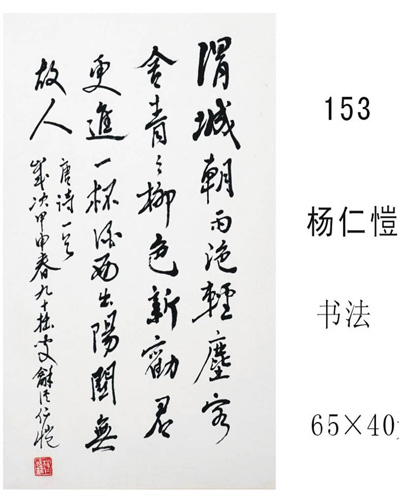 渭城朝雨浥輕塵客
舍青々柳色新勸君
更進一杯酒西出陽關無
故人
唐詩一首
歲次甲申春九十拙叟龢溪仁愷
153
杨仁愷
书法
65×40